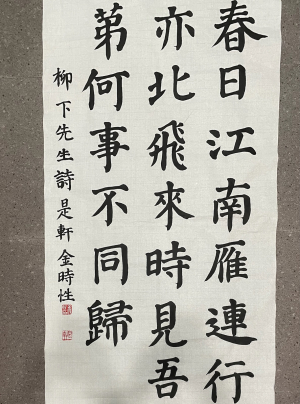 春日江南雁連行
亦北飛來時見吾
苐何事不同歸
柳下先生詩 是軒 金時性